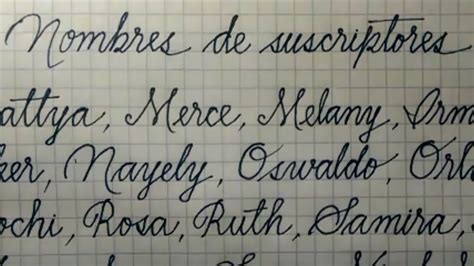 Nombres de suscriptores
attya, Merce, Melany,
ker, Nayely, Oswaldo,
ochi, Rosa, Ruth, Samira,